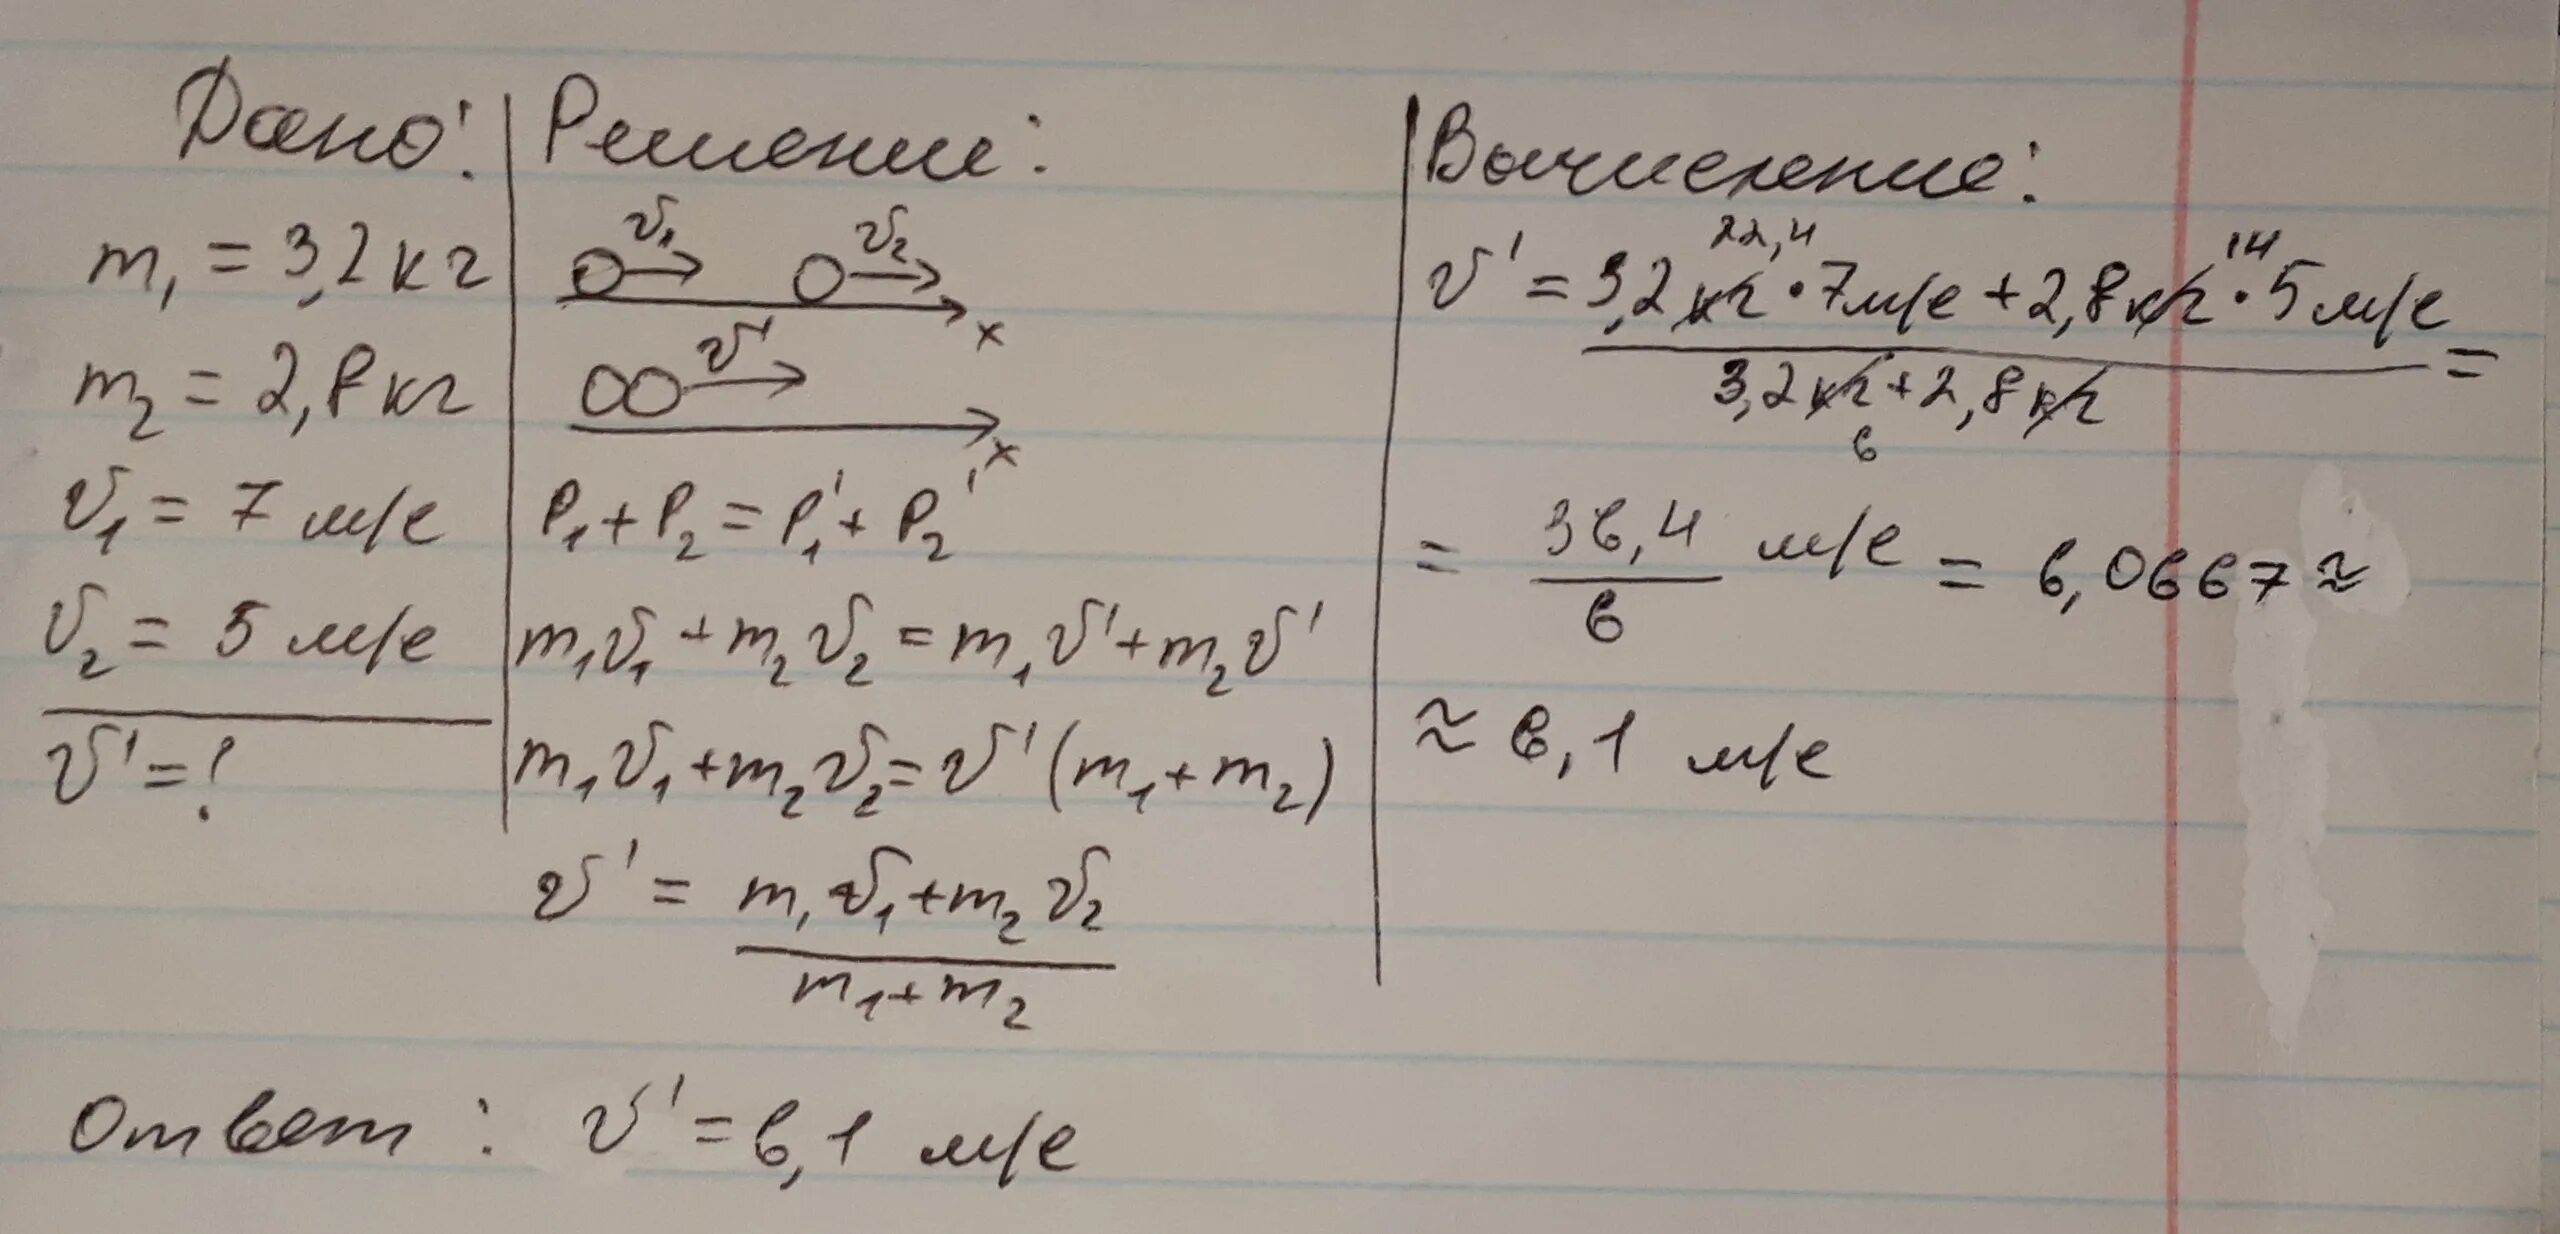 Дано:
m₁ = 3,2 кг
m₂ = 2,8 кг
v₁ = 7 м/с
v₂ = 5 м/с
v' = ?
Решение:
v₁ v₂
x
v'
x
P₁ + P₂ = P₁' + P₂'
m₁v₁ + m₂v₂ = m₁v' + m₂v'
m₁v₁ + m₂v₂ = v' (m₁ + m₂)
v' = m₁v₁ + m₂v₂
m₁ + m₂
Вычисление:
22,4 14
v' = 3,2 кг · 7 м/с + 2,8 кг · 5 м/с =
3,2 кг + 2,8 кг
6
= 36,4 м/с = 6,0667 ≈
6
≈ 6,1 м/с
Ответ: v' = 6,1 м/с